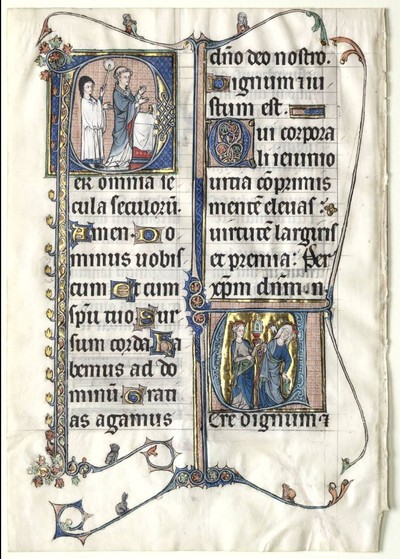 er omnia se
cula seculorū.
Amen. Do
minus uobis
cum Et cum
spū tuo Sur
sum corda ha
bemus ad do
minū Grati
as agamus
dño deo nostro.
Dignum ⁊ iu
stum est.
Qui corpora
li ieiunio
uitia cōprimis
mentē eleuas :
uirtutē largiris
et premia : Per
xp̄m dñm n.
Ere dignum ⁊